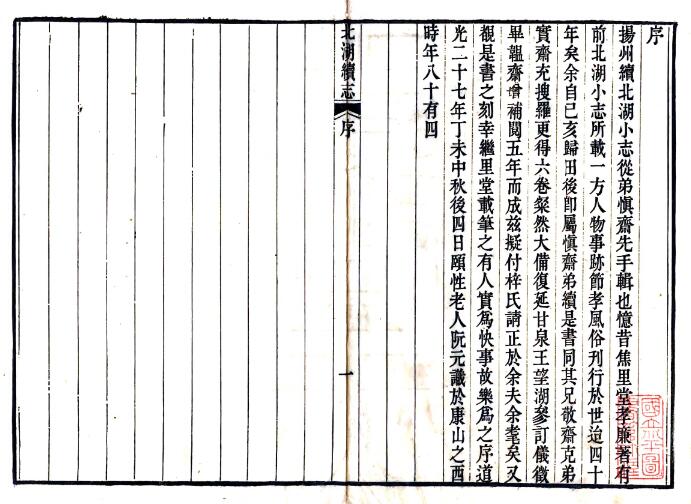 序
揚州續北湖小志從弟慎齋先手輯也憶昔焦里堂孝廉著有
前北湖小志所載一方人物事跡節孝風俗刊行於世迨四十
年矣余自己亥歸田後卽屬慎齋弟續是書同其兄敬齋克弟
實齋充搜羅更得六卷粲然大備復延甘泉王望湖參訂儀徵
畢韞齋增補閱五年而成兹擬付梓氏請正於余夫余耄矣又
觀是書之刻幸繼里堂載筆之有人實爲快事故樂爲之序道
光二十七年丁未中秋後四日頤性老人阮元識於康山之西
時年八十有四
北湖續志
序
一